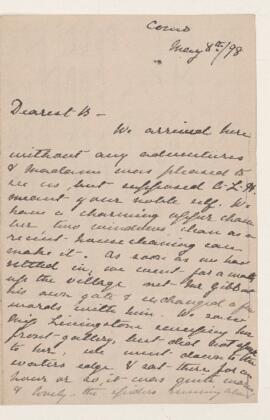 Como
May 8th/98
Dearest B -
We arrived here
without any adventures
& Madame was pleased to
see us, but supposed C. L. H.
meant your noble self. We
have a charming upper cham
ber, two windows, clean as a
recent housecleaning can
make it. As soon as we had
settled in, we went for a walk
up the village met Mr Gibb
his own gate & exchanged a few
words with him. We saw
Miss Livingston
front gallery, but did not speak
to her, we went down to the
waters edge & sat there for an
hour or so, it was quite warm
& lovely - the spiders running along